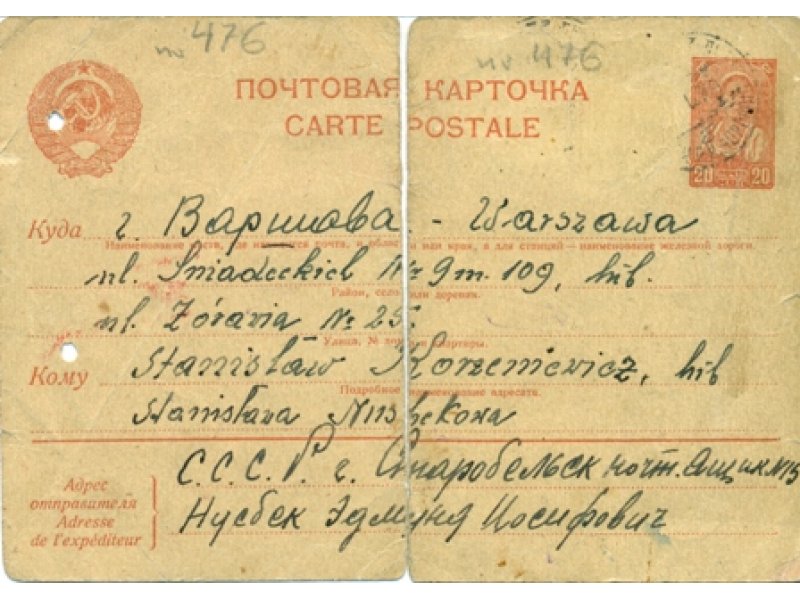 № 476
№ 476
ПОЧТОВАЯ КАРТОЧКА
CARTE POSTALE
20 20
Куда г. Варшова - Warszawa
Наименование места, где находится почта, и области или края, а для станций—наименование железной дороги.
ul. Śniadeckich Nr 9 m. 109, lub.
Район, село или деревня.
ul. Żórawia № 25.
Улица, № дома и квартиры.
Кому Stanisław Korzeniewicz, lub
Подробное наименование адресата.
Stanisława
С.С.С.Р. г. Старобельск почт. Ящик №15
Адрес
отправителя
Adresse
de l'expéditeur
Нусбек Эдмунд Иосифович